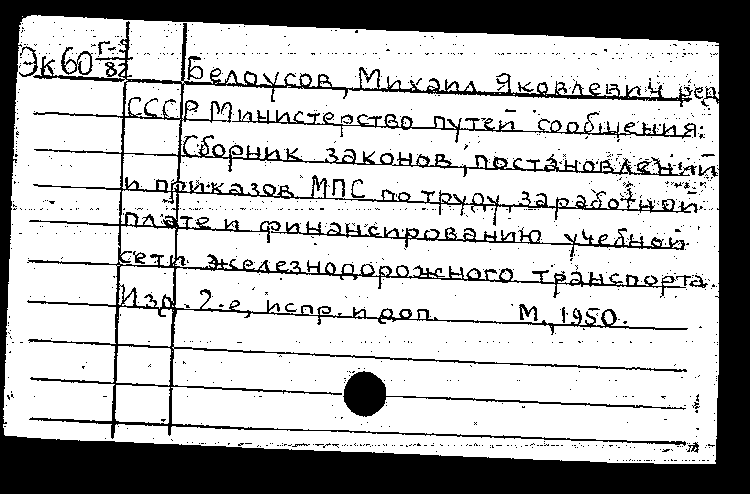 Эк60 Г-5/82
Белоусов, Михаил Яковлевич ред
СССР Министерство путей сообщения:
Сборник законов, постановлений
и приказов МПС по труду, заработной
плате и финансированию учебной
сети железнодорожного транспорта.
Изд. 2-е, испр. и доп. М., 1950.